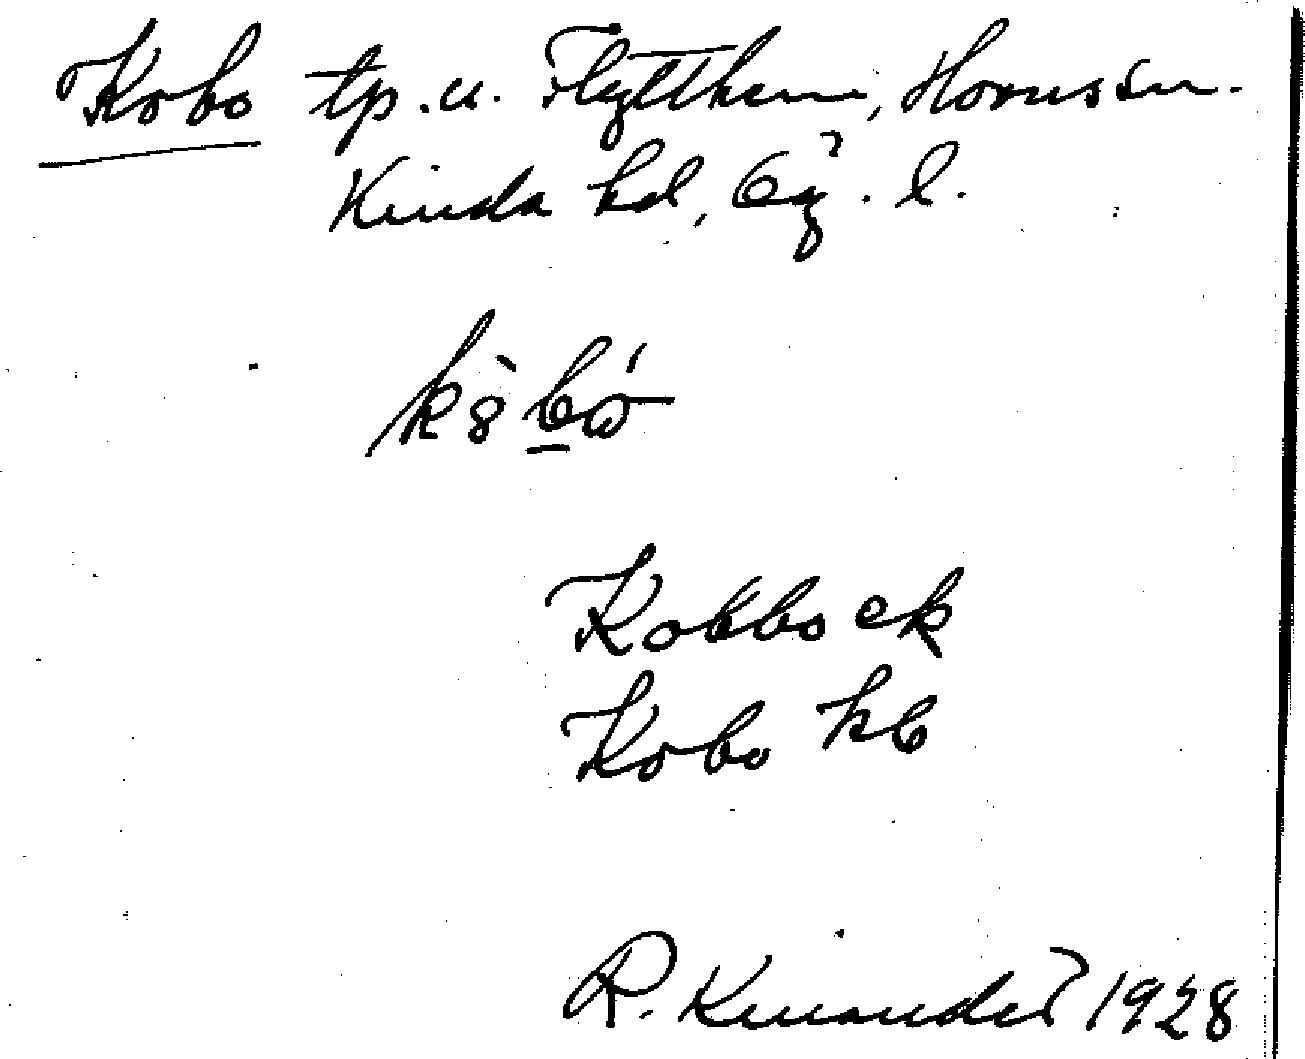 Kobo tp. u. Flytthem, Horns sn.
Kinda hd, Ög. l.
k8̀bώ
Kobbo ek
Kobo kb
R. Kinander 1928